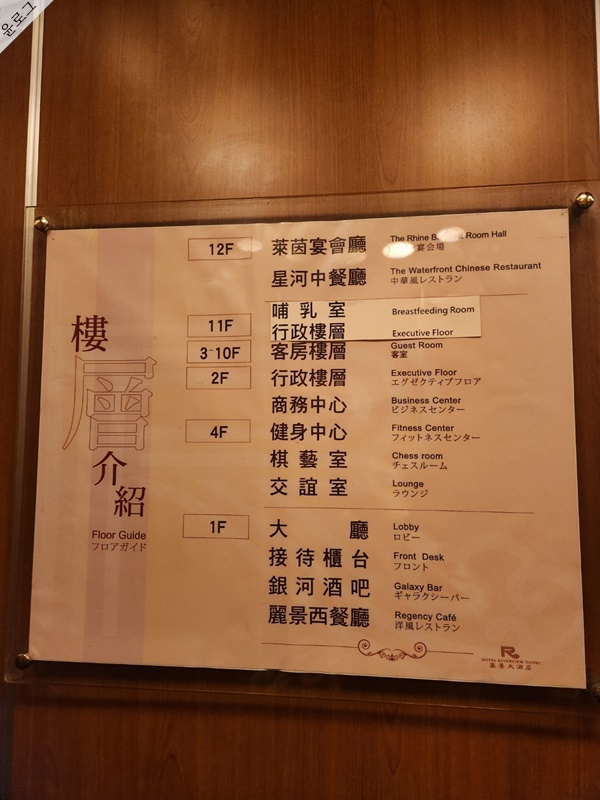 윤로그
樓層介紹
Floor Guide
フロアガイド
12F 萊茵宴會廳 The Rhine Room Hall
宴会場
星河中餐廳 The Waterfront Chinese Restaurant
中華風レストラン
哺乳室 Breastfeeding Room
11F 行政樓層 Executive Floor
3-10F 客房樓層 Guest Room
客室
2F 行政樓層 Executive Floor
エグゼクティブフロア
商務中心 Business Center
ビジネスセンター
4F 健身中心 Fitness Center
フィットネスセンター
棋藝室 Chess room
チェスルーム
交誼室 Lounge
ラウンジ
1F 大廳 Lobby
ロビー
接待櫃台 Front Desk
フロント
銀河酒吧 Galaxy Bar
ギャラクシーバー
麗景西餐廳 Regency Café
洋風レストラン
R
HOTEL RIVERVIEW TAIPEI
豪景大酒店